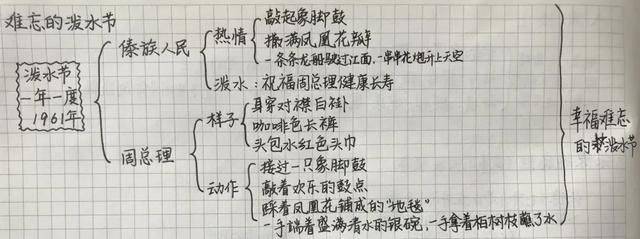 难忘的泼水节
泼水节
一年一度
1961年
傣族人民
热情
敲起象脚鼓
撒满凤凰花瓣
一条条龙船驶过江面,一串串花炮升上天空
泼水:祝福周总理健康长寿
周总理
样子
身穿对襟白褂
咖啡色长裤
头包水红色头巾
动作
接过一只象脚鼓
敲着欢乐的鼓点
踩着凤凰花铺成的“地毯”
一手端着盛满清水的银碗,一手拿着柏树枝蘸了水
幸福难忘
的泼水节